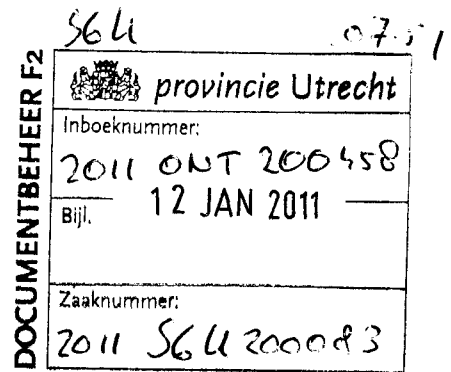 SGU 07.51
DOCUMENTBEHEER F2
provincie Utrecht
Inboeknummer:
2011 ONT 200458
Bijl. 12 JAN 2011
Zaaknummer:
2011 SGU 200083